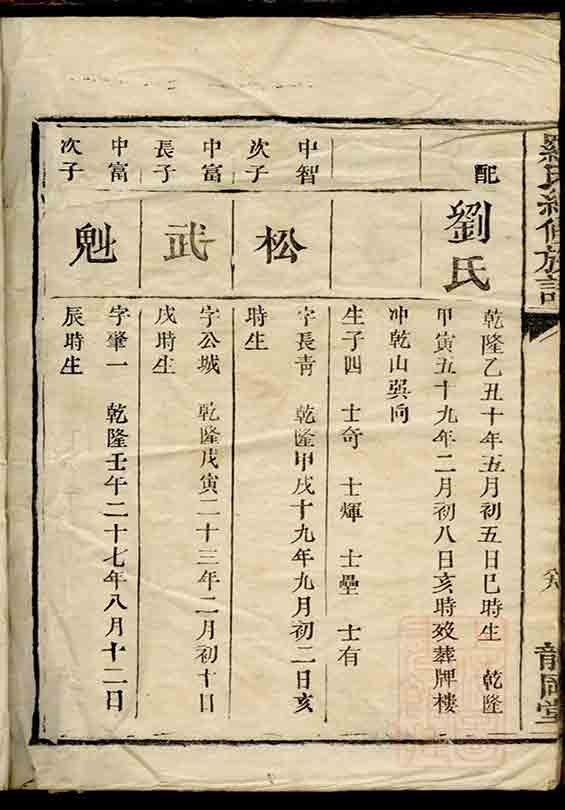 羅氏續修族譜
龍岡堂
配
劉氏
乾隆乙丑十年五月初五日巳時生 乾隆
甲寅五十九年二月初八日亥時歿葬牌樓
冲乾山吳向
生子四 士奇 士煇 士壘 士有
中智
次子
松
字長青 乾隆甲戌十九年九月初二日亥
時生
中富
長子
武
字公城 乾隆戊寅二十三年二月初十日
戌時生
中富
次子
魁
字肇一 乾隆壬午二十七年八月十二日
辰時生